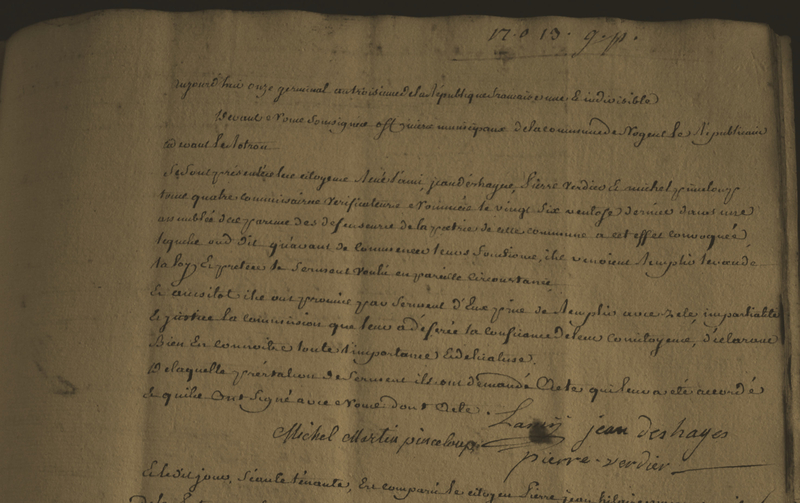 17.0 13. 9. p.
aujourd'hui onze germinal an troisieme de la République francaise une & indivisible
Devant Nous Soussignés officiers municipaux de la commune de Nogent le Républicain
devant le Rotrou
Se Sont présentés les citoyens René Lami, jean deshayes, Pierre Verdier & michel pinceloup
tous quatre commissaires verificateurs Nommés le vingt Six ventose dernier dans une
assemblée des parens des defenseurs de la patrie de cette commune a cet effet convoqués,
lesquels ont dit qu'avant de commencer leurs fonctions, ils venoient Remplir le vœu de
la loy, & preter le Serment voulu en pareille circonstance
Et aussitot ils ont promis par Serment d'Eux pris de Remplir avec zele impartialité
& justice la commission que leur a déferée la confiance de leurs concitoyens, declarant
Bien En connoitre toute l'importance & delicatesse.
De laquelle prestation de Serment ils ont demandé Acte qui leur a été accordé
& qu'ils Ont Signé avec Nous dont Acte.
Lamy jean deshayes
Michel Martin pinceloup
pierre verdier
Et le dit jour, Séante tenante, Est comparu le citoyen Pierre jean hilaire